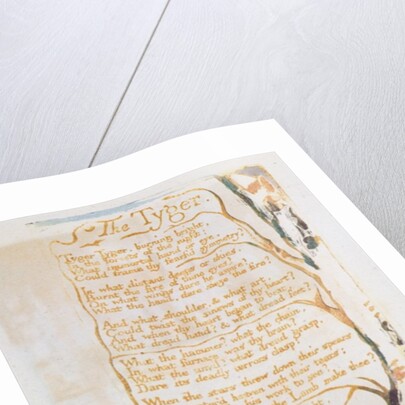 The Tyger.
Tyger Tyger, burning bright,
In the forests of the night;
What immortal hand or eye,
Could frame thy fearful symmetry?
In what distant deeps or skies,
Burnt the fire of thine eyes?
On what wings dare he aspire?
What the hand, dare sieze the fire?
And what shoulder, & what art,
Could twist the sinews of thy heart?
And when thy heart began to beat,
What dread hand? & what dread feet?
What the hammer? what the chain,
In what furnace was thy brain?
What the anvil? what dread grasp,
Dare its deadly terrors clasp?
When the stars threw down their spears